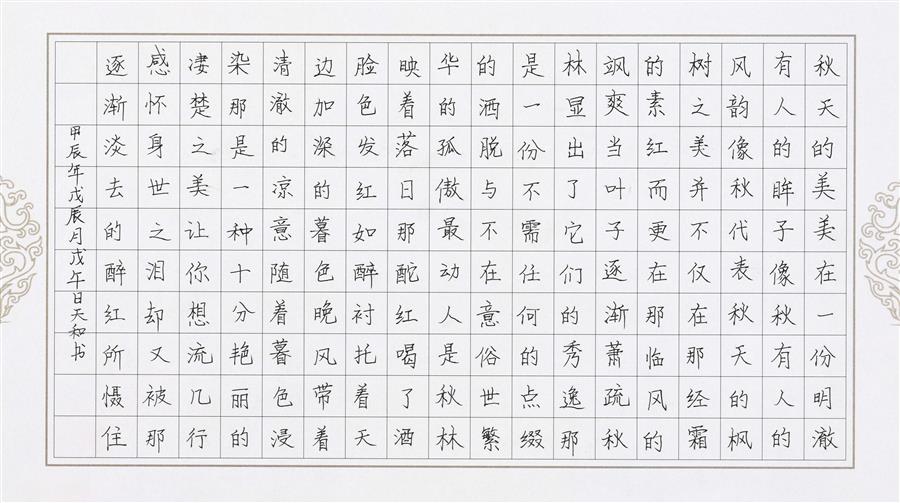 秋天的美美在一份明澈
有人的眸子像秋有人的
风韵像秋代表秋天的枫
树之美并不仅在那经霜
的素红而更在那临风的
飒爽当叶子逐渐萧疏秋
林显出了它们的秀逸那
是一份不需任何的点缀
的洒脱与不在意俗世繁
华的孤傲最动人是秋林
映着落日那酡红喝了酒
脸色发红如醉衬托着天
边加深的暮色晚风带着
清澈的凉意随着暮色浸
染那是一种十分艳丽的
凄楚之美让你想流几行
感怀身世之泪却又被那
逐渐淡去的醉红所慑住
甲辰年戊辰月戊午日天和书